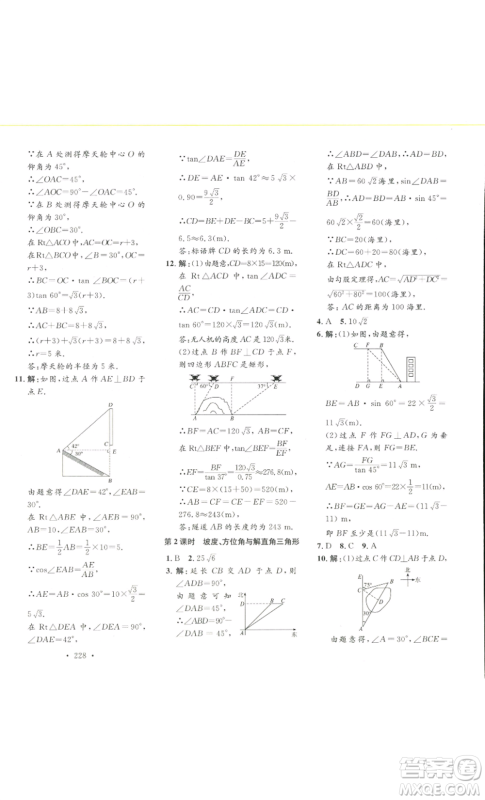 ∵在A处测得摩天轮中心O的
仰角为45°,
∴∠OAC=45°,
∴∠AOC=90°-∠OAC=45°.
∵在B处测得摩天轮中心O的
仰角为30°,
∴∠OBC=30°.
在Rt△OAC中,
AC=OC=r+3.
在Rt△OBC中,
∴BC=OC/
tan30°=√3(r+3).
∵AB=8+8√3,
∴r+3+√3(r+3)=8+8√3,
∴(r+3)(1+√3)=8(1+√3),
∴r=5米.
答:摩天轮的半径为5米.
11.解:如图,过点A作AE⊥BD于
点E.
A
42°
30°
E
由题意得∠DAE=42°,
∠EAB=30°.
在Rt△ABE中,∠AEB=90°,
AB=10,∠EAB=30°,
∴BE=1/2AB=1/2×10=5.
∵cos∠EAB=AE/AB,
∴AE=AB·cos30°=10×√3/2=
5√3.
在Rt△DEA中,∠DEA=90°,
∠DAE=42°,
·228·
∵tan∠DAE=DE/AE,
∴DE=AE·tan42°≈5√3×
0.90=9√3/2,
∴CD=8+5-9√3/2=13-9√3/2
≈6.3(m).
答:标语牌CD的长约为6.3m.
12.解:(1)由题意,得CD=8×15=120(m),
在Rt△ACD中,tan∠ADC=
AC/CD,
∴AC=CD·tan∠ADC=CD·
tan60°=120×√3=120√3(m).
答:无人机的高度AC是120√3m.
(2)过点B作BF⊥CD于点F,
则四边形ABFC是矩形.
C
60°
D
F
37°
E
A
B
∴BF=AC=120√3,AB=CF.
在Rt△BEF中,tan∠BEF=BF/EF,
∴EF=BF/tan37°=120√3/tan37°≈276.8(m).
∵CE=8×(15+50)=520(m),
∴AB=CF=CE-EF=520-
276.8≈243(m).
答:隧道AB的长度约为243m.
第2课时 坡度、方位角与解直角三角形
1.B 2.25√6
3.解:延长CB交AD于点D,则
∠ADB=90°,
由题意可知
∠DAB=45°,
∵∠ADB=90°,
北
东
D
B
C
A
∴∠ABD=∠DAB=45°,
∴∠ABD=∠DAB,∴AD=BD.
在Rt△ABD中,
∵AB=60√2海里,sin∠DAB=
BD/AB,
∴AD=BD=AB·sin45°=
60√2×√2/2=60(海里).
∵BC=20海里,
∴DC=60+20=80(海里).
在Rt△ADC中,
由勾股定理得,AC=√AD²+DC²=
√60²+80²=100(海里).
答:AC的距离为100海里.
4.A 5.10√2
6.解:(1)如图,由题意得,
C
F
B
D
G
E
A
BE=AB·sin60°=22×√3/2=
11√3(m).
(2)过点F作FG⊥AD,垂足为
点G,连接AF.
由题意得,FG=BE=11√3m,
∵AG=FG/tan45°=11√3m,
AE=AB·cos60°=22×1/2=
11(m),
∴BF=AG-AE=(11√3-11)m,
即BF至少是(11√3-11)m.
7.D 8.C 9.A
10.解:(1)过点C作CD⊥AB于点
D,如图.
北
东
B
75°
C
D
A
由题意得,∠A=30°,∠BCE=
答案圈
MXQE.COM